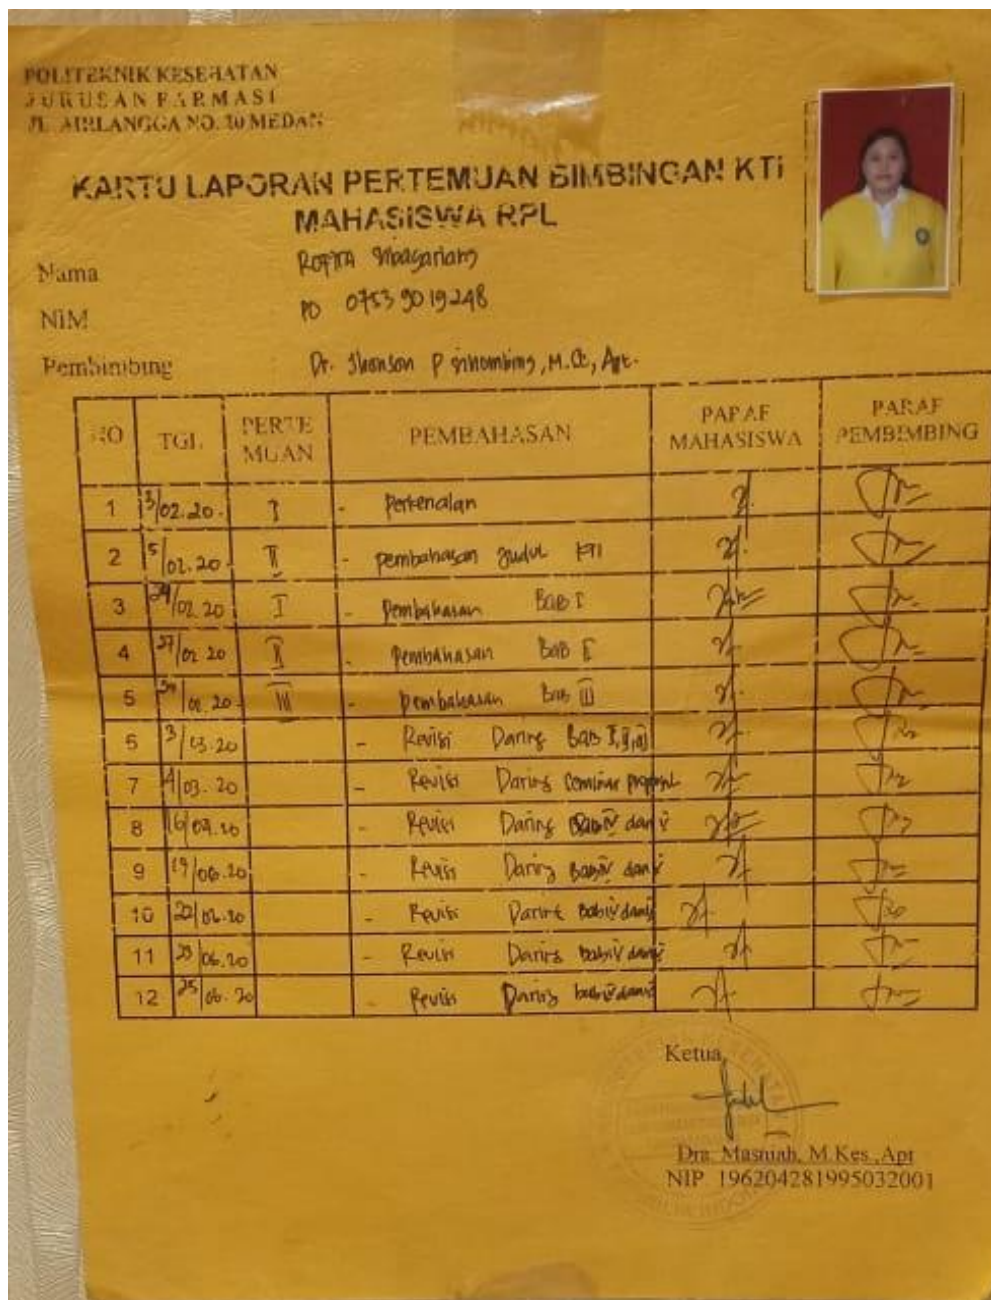 POLITEKNIK KESEHATAN
JURUSAN FARMASI
JL. AIRLANGGA NO. 20 MEDAN
KARTU LAPORAN PERTEMUAN BIMBINGAN KTI
MAHASISWA RPL
Nama Sibagariang
NIM PO 07539019248
Pembimbing Dr. Jhonson P Sihombing, M.Sc, Apt.
NO TGL PERTEMUAN PEMBAHASAN PARAF MAHASISWA PARAF PEMBIMBING
1 3/02.20. I - Perkenalan
2 5/02.20 II - pembahasan Judul KTI
3 24/02.20 I - Pembahasan Bab I
4 27/02.20 II - Pembahasan Bab II
5 02.20 III - pembahasan Bab III
6 3/03.20 - Revisi Daring Bab I, II, III
7 4/03.20 - Revisi Daring seminar proposal
8 16/ .20 - Revisi Daring Bab IV dan V
9 19/06.20 - Revisi Daring Bab IV dan V
10 22/06.20 - Revisi Daring Bab IV dan V
11 23/06.20 - Revisi Daring bab IV dan V
12 25/06.20 - Revisi Daring bab IV dan V
Ketua,
Dra. Masniah, M.Kes.,Apt
NIP 196204281995032001